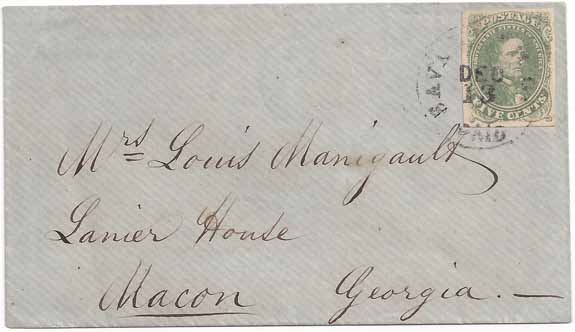 POSTAGE
FIVE CENTS
SAV
DEC
13
PAID
Mrs Louis Manigault
Lanier House
Macon Georgia.—